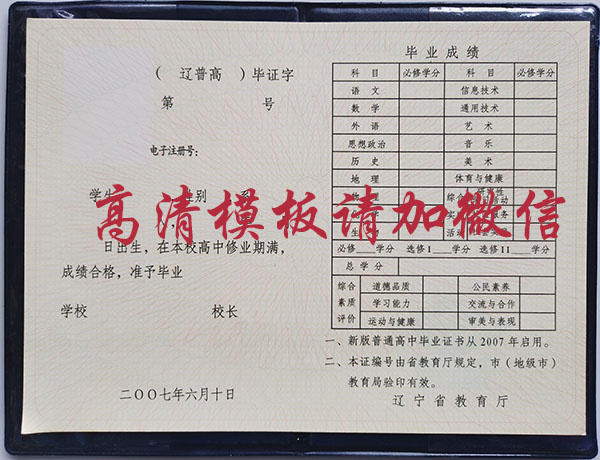 （ 辽普高 ）毕证字
第 号
电子注册号：
学生 性别 系
日出生，在本校高中修业期满，
成绩合格，准予毕业
学校 校长
二〇〇七年六月十日
毕业成绩
科 目 必修学分 科 目 必修学分
语 文 信息技术
数 学 通用技术
外 语 艺 术
思想政治 音 乐
历 史 美 术
地 理 体育与健康
必修 学分 选修I 学分 选修II 学分
总 学 分
综合 道德品质 公民素养
素质 学习能力 交流与合作
评价 运动与健康 审美与表现
一、新版普通高中毕业证书从2007年启用。
二、本证编号由省教育厅规定，市（地级市）
教育局验印有效。
辽宁省教育厅
高清模板请加微信